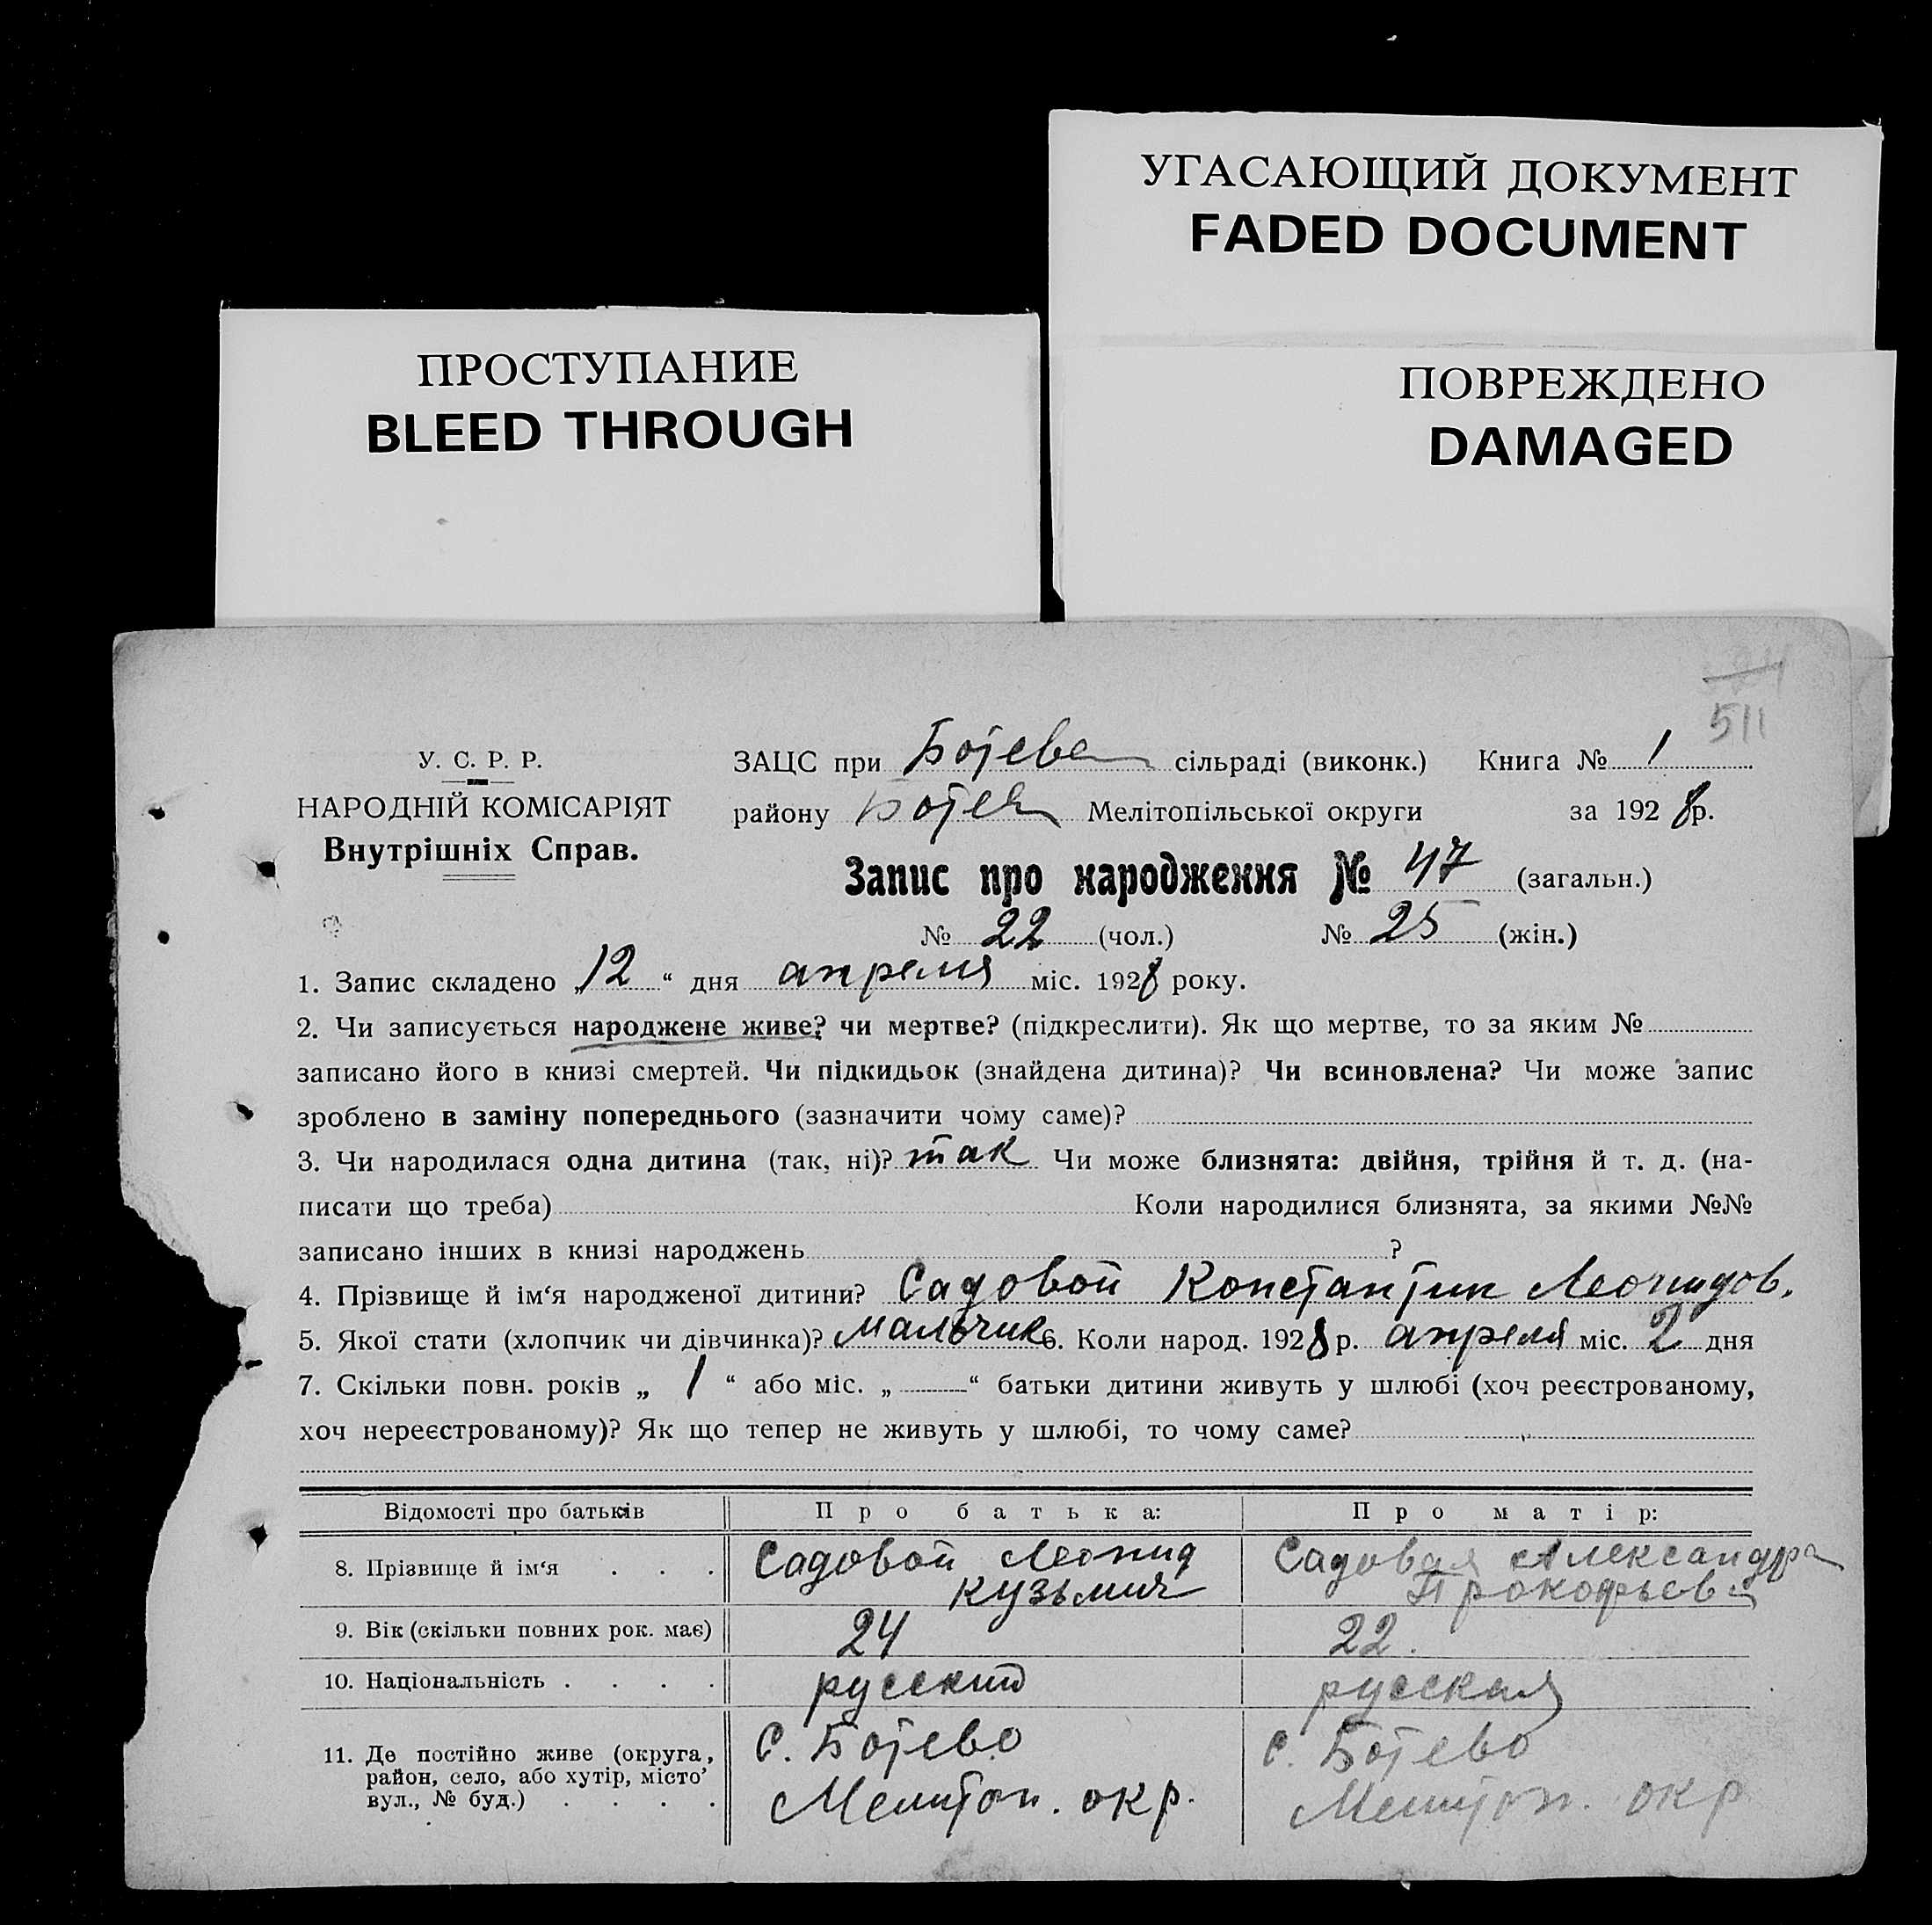 УГАСАЮЩИЙ ДОКУМЕНТ
FADED DOCUMENT
ПРОСТУПАНИЕ
BLEED THROUGH
ПОВРЕЖДЕНО
DAMAGED
511
У. С. Р. Р.
НАРОДНІЙ КОМІСАРІЯТ
Внутрішніх Справ.
ЗАЦС при Ботеве сільраді (виконк.) Книга № 1
району Ботев Мелітопільської округи за 1928 р.
Запис про народження № 47 (загальн.)
№ 22 (чол.) № 25 (жін.)
1. Запис складено „12“ дня апреля міс. 1928 року.
2. Чи записується народжене живе? чи мертве? (підкреслити). Як що мертве, то за яким №
записано його в книзі смертей. Чи підкидьок (знайдена дитина)? Чи всиновлена? Чи може запис
зроблено в заміну попереднього (зазначити чому саме)?
3. Чи народилася одна дитина (так, ні)? так Чи може близнята: двійня, трійня й т. д. (на-
писати що треба) Коли народилися близнята, за якими №№
записано інших в книзі народжень ?
4. Прізвище й ім‘я народженої дитини? Садовой Константин Леонидов.
5. Якої стати (хлопчик чи дівчинка)? мальчик 6. Коли народ. 1928 р. апреля міс. 2 дня
7. Скільки повн. років „ 1 “ або міс. „ — “ батьки дитини живуть у шлюбі (хоч реєстрованому,
хоч нереєстрованому)? Як що тепер не живуть у шлюбі, то чому саме?
Відомості про батьків Про батька: Про матір:
8. Прізвище й ім‘я . . . Садовой Леонид Кузьмич Садовая Александра Прокофьев
9. Вік (скільки повних рок. має) 24 22.
10. Національність . . . . русский русская
11. Де постійно живе (округа, район, село, або хутір, місто’ вул., № буд.) . . . . с. Ботево Мелитоп. окр. с. Ботево Мелитоп. окр